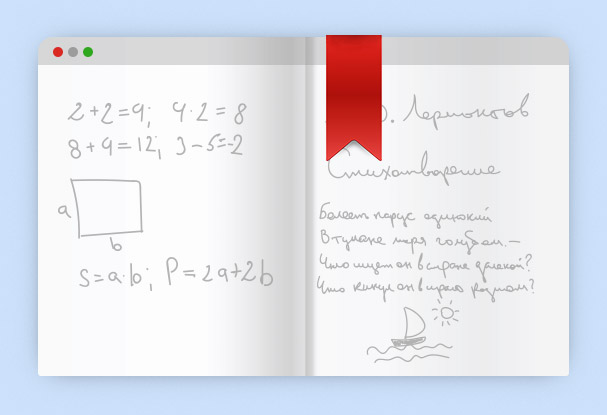 2+2=4; 4·2=8
8+4=12; 3-5=-2
a
b
S=a·b; P=2a+2b
Лермонтов
Стихотворение
Белеет парус одинокий
В тумане моря голубом.—
Что ищет он в стране далекой?
Что кинул он в краю родном?